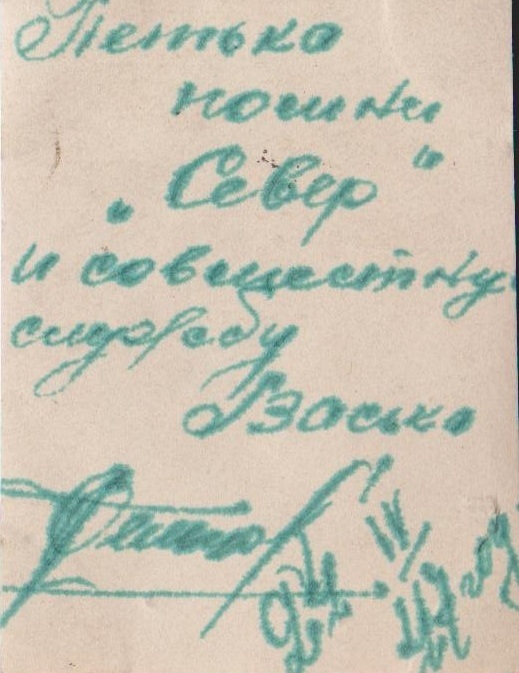 Петька
помни
„Север"
и совместную
службу
Васька